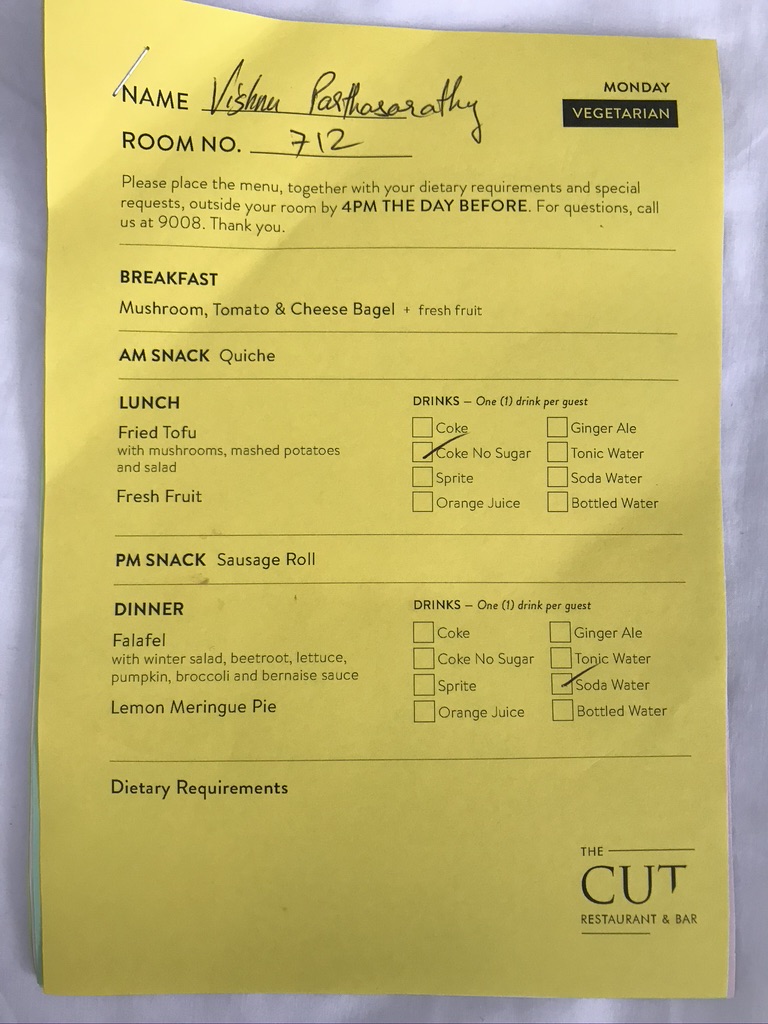 NAME Vishnu Parthasarathy
MONDAY
VEGETARIAN
ROOM NO. 712
Please place the menu, together with your dietary requirements and special
requests, outside your room by 4PM THE DAY BEFORE. For questions, call
us at 9008. Thank you.
BREAKFAST
Mushroom, Tomato & Cheese Bagel + fresh fruit
AM SNACK Quiche
LUNCH
Fried Tofu
with mushrooms, mashed potatoes
and salad
Fresh Fruit
DRINKS – One (1) drink per guest
Coke
Coke No Sugar
Sprite
Orange Juice
Ginger Ale
Tonic Water
Soda Water
Bottled Water
PM SNACK Sausage Roll
DINNER
Falafel
with winter salad, beetroot, lettuce,
pumpkin, broccoli and bernaise sauce
Lemon Meringue Pie
DRINKS – One (1) drink per guest
Coke
Coke No Sugar
Sprite
Orange Juice
Ginger Ale
Tonic Water
Soda Water
Bottled Water
Dietary Requirements
THE
CUT
RESTAURANT & BAR